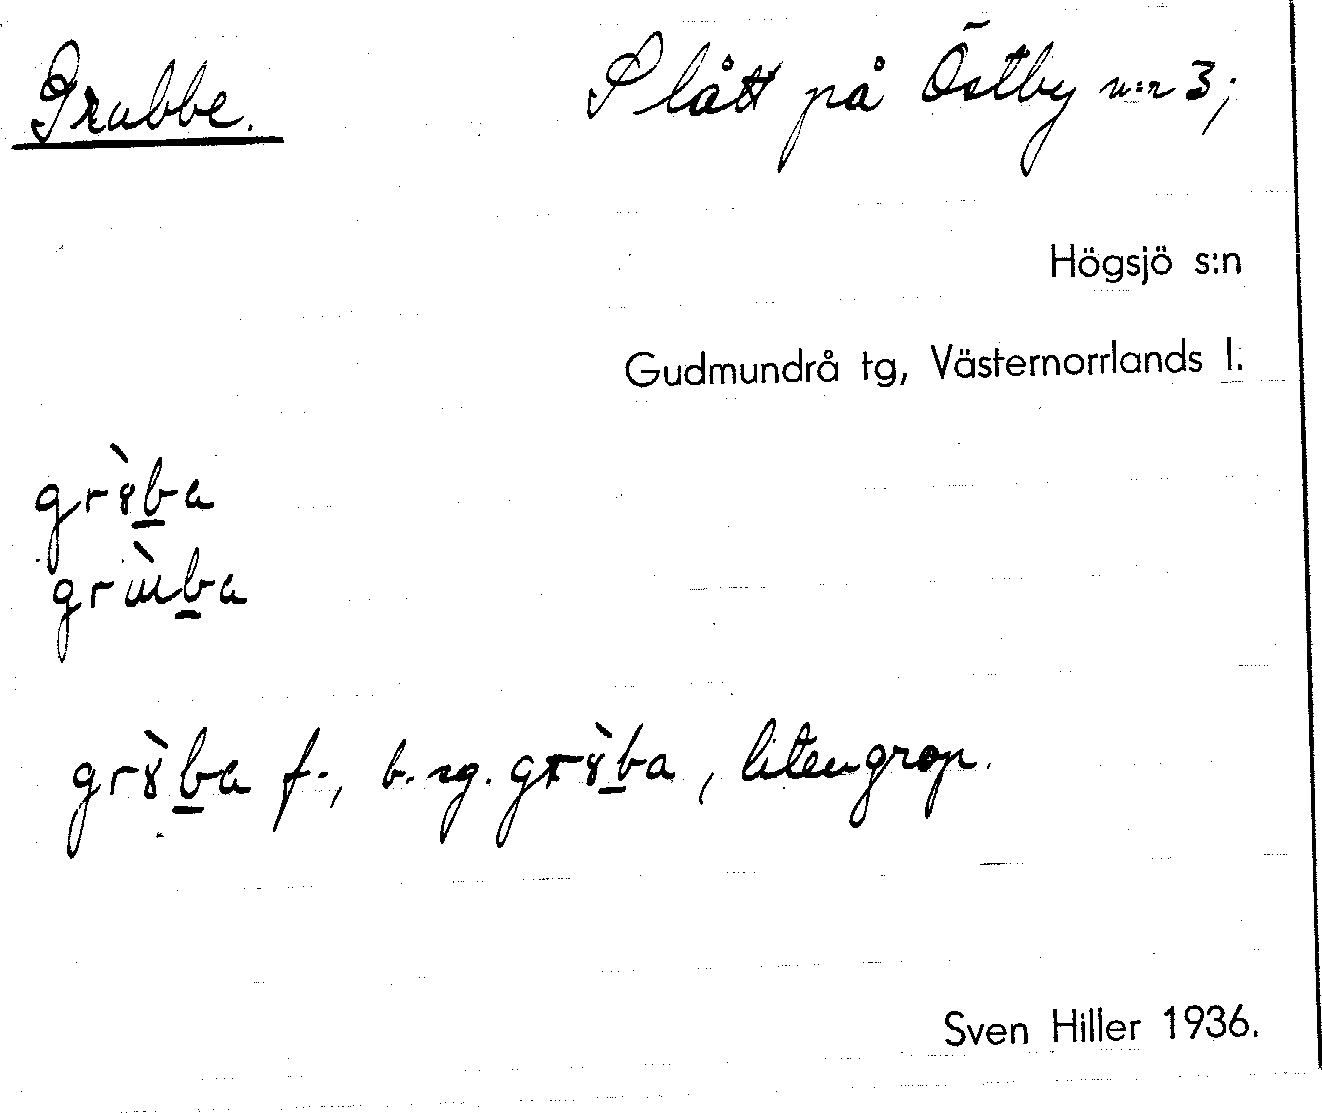 Grubbe. Slått på Östby n:r 3;
Högsjö s:n
Gudmundrå tg, Västernorrlands l.
grȣ̀ba
grɯ̀ba
grȣ̀ba f., b. sg. grȣ̀ba, liten grop.
Sven Hiller 1936.